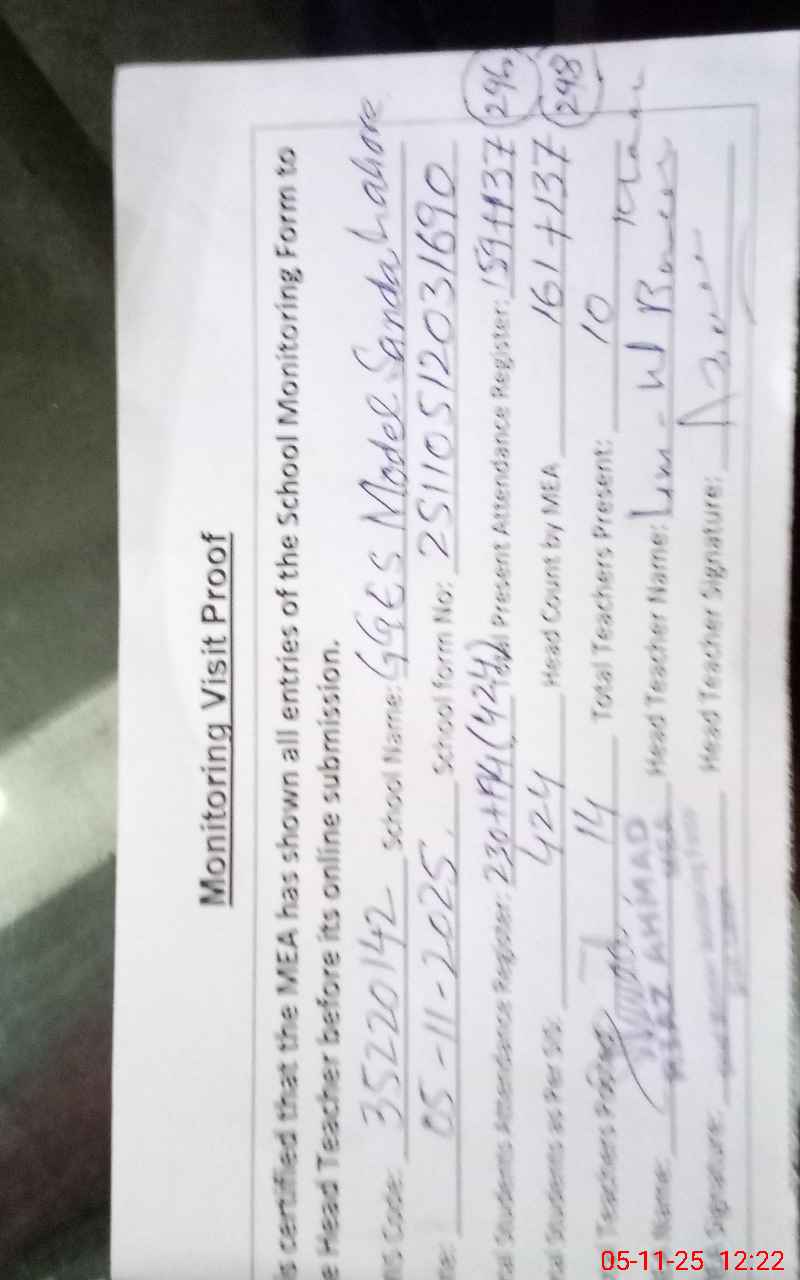 Monitoring Visit Proof
is certified that the MEA has shown all entries of the School Monitoring Form to
e Head Teacher before its online submission.
IS Code: 35220142 School Name: GGES Model Sanda Lahore
te: 05-11-2025. School form No: 25110512031690
al Students Attendance Register: 230+194(424) Total Present Attendance Register: 159+137 296
al Students as Per SIS: 424 Head Count by MEA 161+137 298
l Teachers Posted 14 Total Teachers Present: 10
Name: AHMAD Head Teacher Name:
Signature: Head Teacher Signature:
05-11-25 12:22